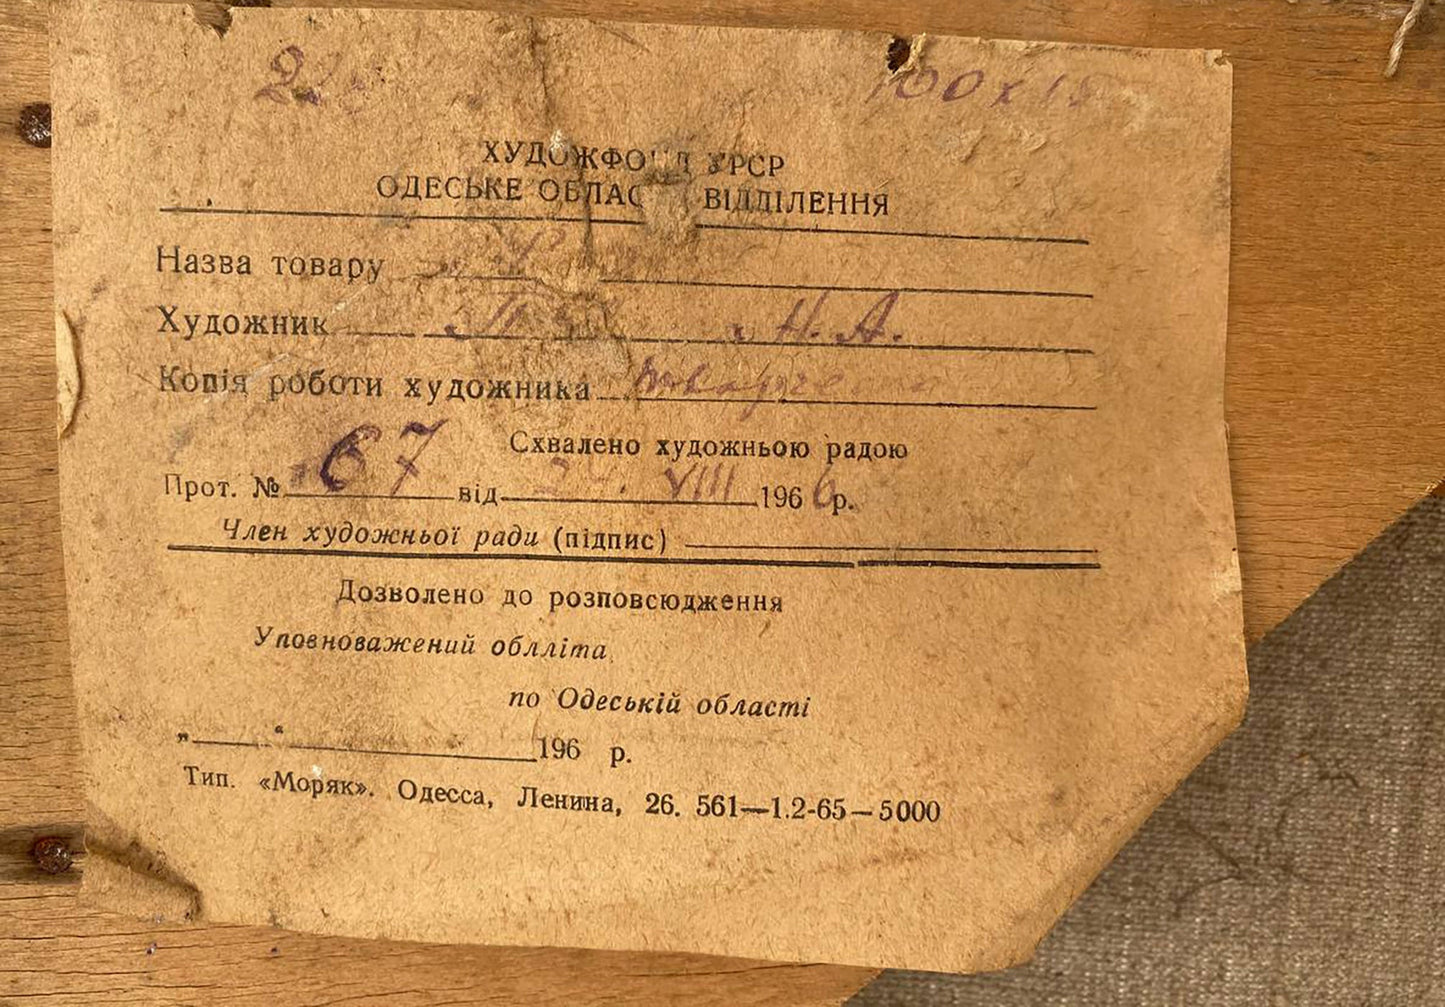 ХУДОЖФОНД УРСР
ОДЕСЬКЕ ВІДДІЛЕННЯ
Назва товару
Художник Н. А.
Копія роботи художника
Схвалено художньою радою
Прот. № 67 від VIII 1966 р.
Член художньої ради (підпис)
Дозволено до розповсюдження
Уповноважений облліта
по Одеській області
„ “ 196 р.
Тип. «Моряк». Одесса, Ленина, 26. 561—1.2-65—5000